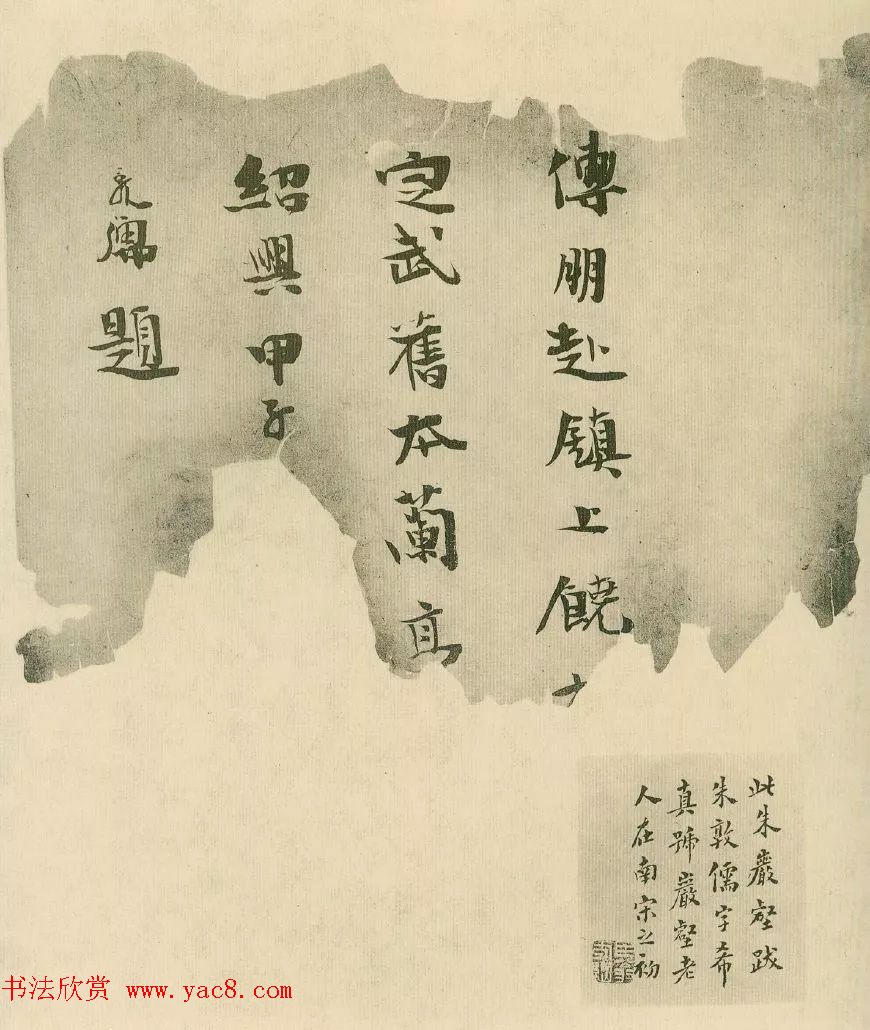 傅朋赴鎮上饒
定武舊本蘭真
紹興甲子
題
此朱巖壑跋
朱敦儒字希
真號巖壑老
人在南宋之初
书法欣赏 www.yac8.com